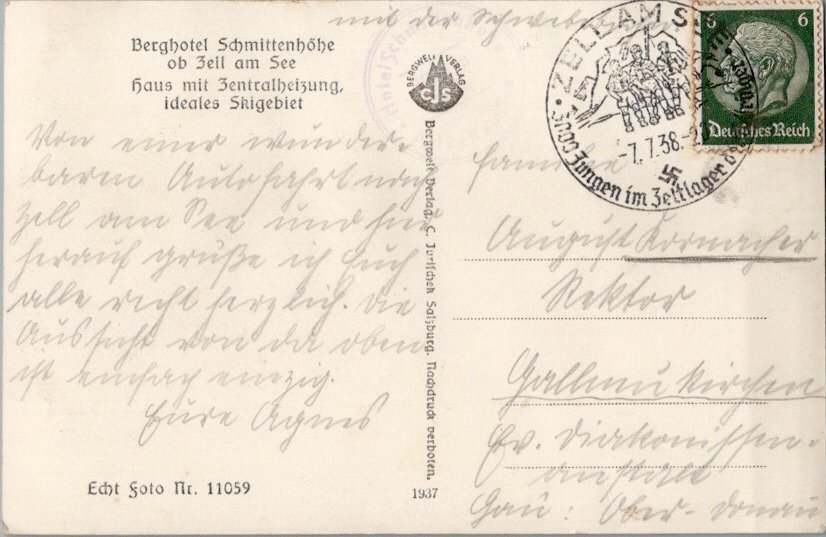 mit der Schwebe
Berghotel Schmittenhöhe
ob Zell am See
Haus mit Zentralheizung,
ideales Skigebiet
BERGWELT VERLAG
CJS
Von einer wunder-
baren Autofahrt nach
Zell am See und hier
herauf grüße ich Euch
alle recht herzlich. Die
Aussicht von da oben
ist einfach einzig.
Eure Agnes
Echt Foto Nr. 11059
Bergwelt Verlag C. Jurischek Salzburg. Nachdruck verboten.
1937
Hotel Schm
ZELL AM S
-7.7.38.
5000 Jungen im Zeltlager
6 6
Deutsches Reich
Familie
August Kormacher
Rektor
Gallneukirchen
Ev. Diakonissen-
anstalt
Gau: Ober-Donau